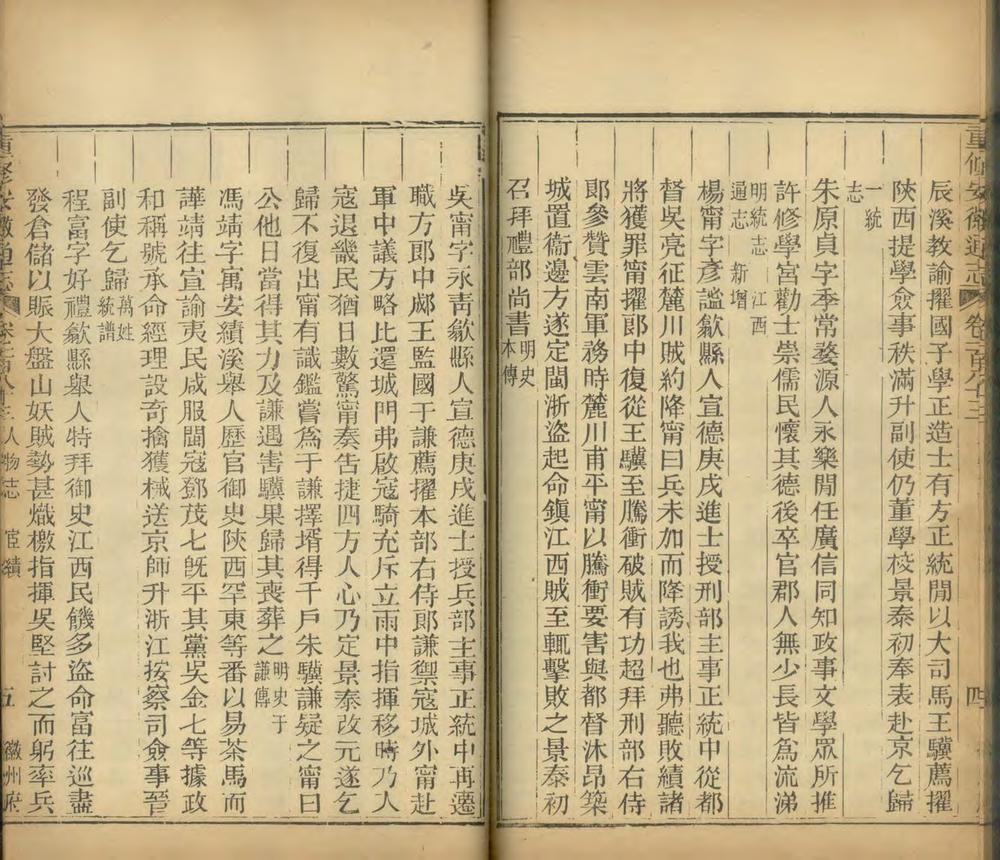 重修安徽通志 卷一百八十三 四
辰溪教諭擢國子學正造士有方正統閒以大司馬王驥薦擢
陝西提學僉事秩滿升副使仍董學校景泰初奉表赴京乞歸
一統
志
朱原貞字季常婺源人永樂閒任廣信同知政事文學眾所推
許修學宮勸士崇儒民懷其德後卒官郡人無少長皆爲流涕
明統志 江西
通志 新增
楊甯字彥謐歙縣人宣德庚戌進士授刑部主事正統中從都
督吳亮征麓川賊約降甯曰兵未加而降誘我也弗聽敗績諸
將獲罪甯擢郎中復從王驥至騰衝破賊有功超拜刑部右侍
郎參贊雲南軍務時麓川甫平甯以騰衝要害與都督沐昂築
城置衞邊方遂定閩浙盜起命鎭江西賊至輒擊敗之景泰初
召拜禮部尚書明史
本傳
吳甯字永靑歙縣人宣德庚戌進士授兵部主事正統中再遷
職方郎中郕王監國于謙薦擢本部右侍郎謙禦寇城外甯赴
軍中議方略比還城門弗啟寇騎充斥立雨中指揮移時乃入
寇退畿民猶日數驚甯奏吿捷四方人心乃定景泰改元遂乞
歸不復出甯有識鑑嘗爲于謙擇壻得千戶朱驥謙疑之甯曰
公他日當得其力及謙遇害驥果歸其喪葬之明史于
謙傳
馮靖字萬安績溪舉人歷官御史陝西罕東等番以易茶馬而
譁靖往宣諭夷民咸服閩寇鄧茂七旣平其黨吳金七等據政
和稱號承命經理設奇擒獲械送京師升浙江按察司僉事晉
副使乞歸萬姓
統譜
程富字好禮歙縣舉人特拜御史江西民饑多盜命富往巡盡
發倉儲以賑大盤山妖賊勢甚熾檄指揮吳堅討之而躬率兵
重修安徽通志 卷一百八十三 人物志 宦績 五 徽州府